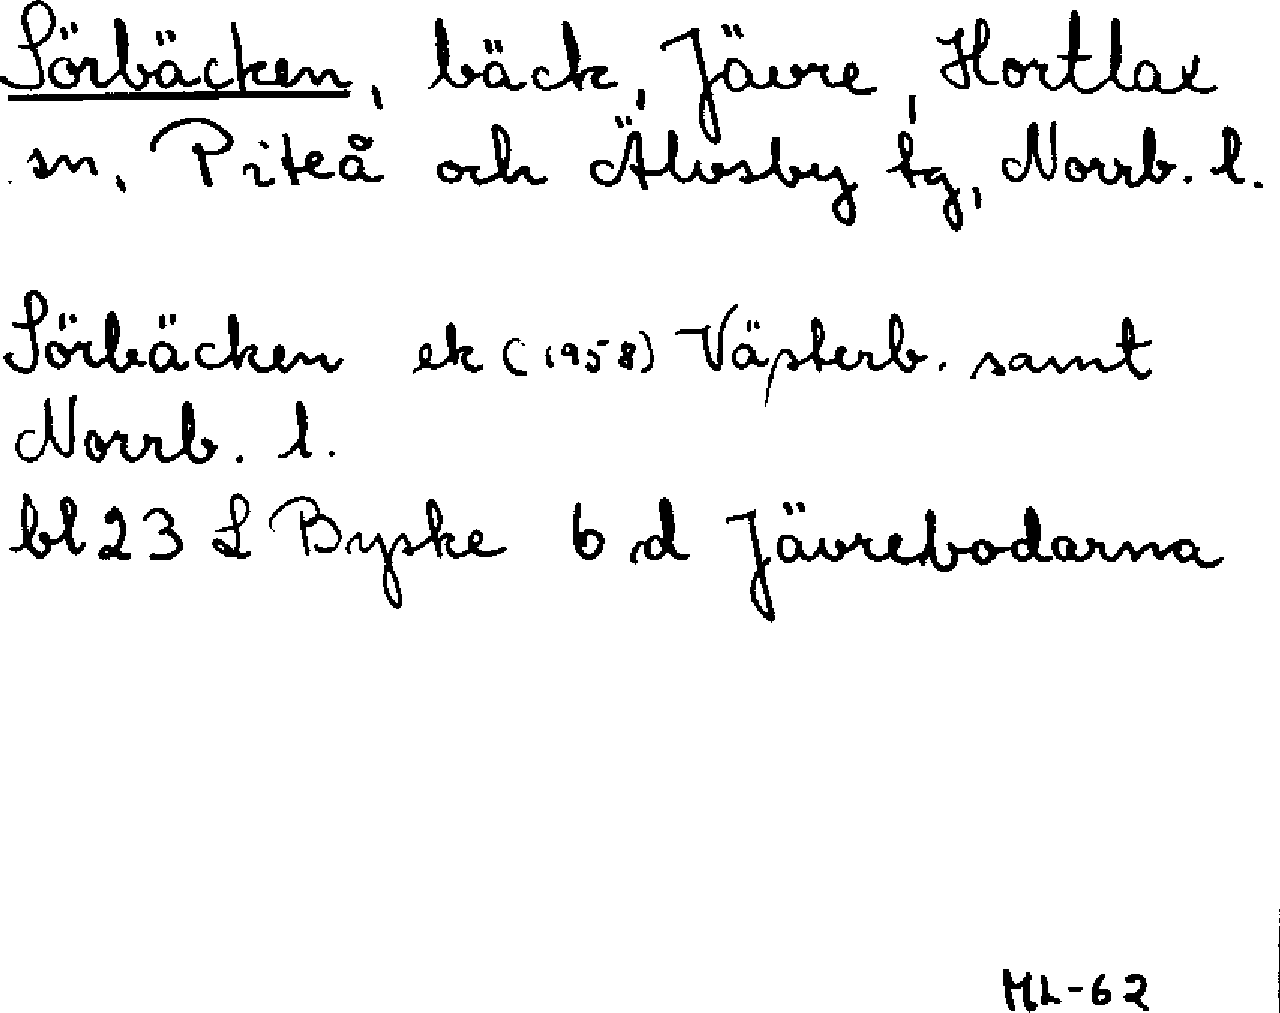 Sörbäcken, bäck, Jävre, Hortlax
sn, Piteå och Älvsby tg, Norrb. l.
Sörbäcken ek (1958) Västerb. samt
Norrb. l.
bl 23 L Byske 6 d Jävrebodarna
ML-62